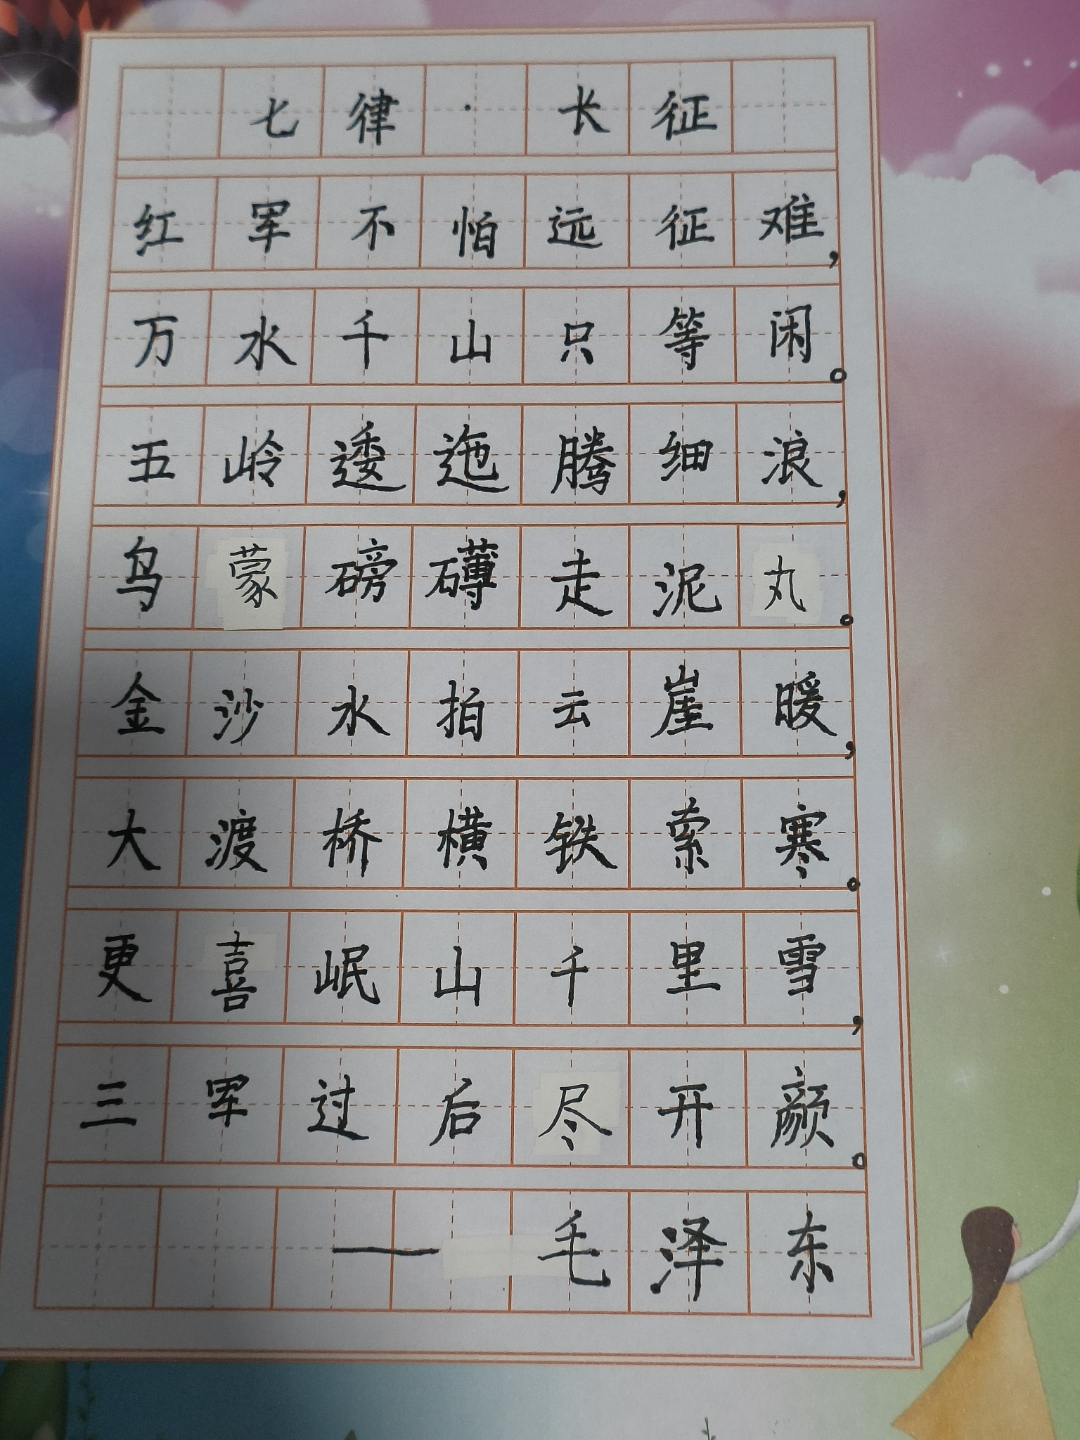 七律·长征
红军不怕远征难，
万水千山只等闲。
五岭逶迤腾细浪，
乌蒙磅礴走泥丸。
金沙水拍云崖暖，
大渡桥横铁索寒。
更喜岷山千里雪，
三军过后尽开颜。
—毛泽东